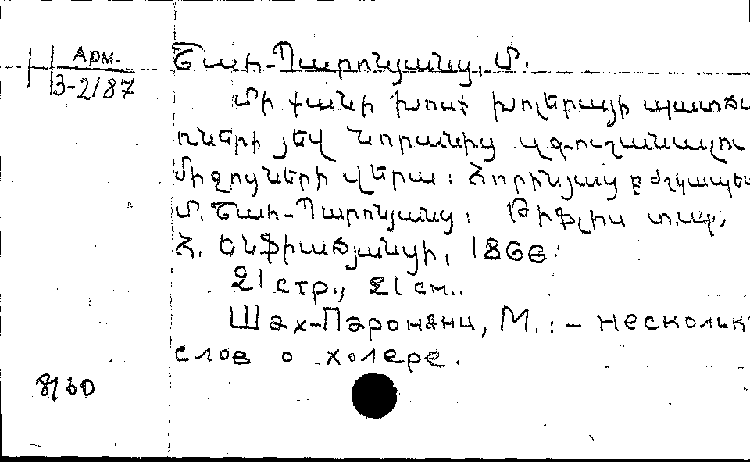 Арм.
3-2187
Շահ-Պարոնյանց, Մ.
Մի քանի խոսք խոլերայի պատճա
ռների յեվ նորանից զգուշանալու
միջոցների վերա: Հորինյաց բժշկապետ
Մ. Շահ-Պարոնյանց: Թիֆլիս տպ.
Հ. Ենֆիաճյանցի, 1866:
21 стр., 21 см.
Шах-Паронянц, М.: - нескольк
слов о холере.
8160